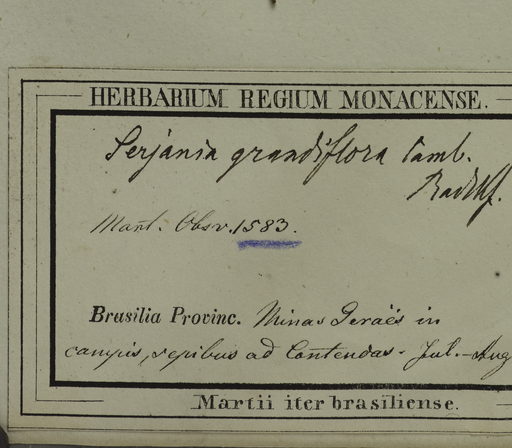 HERBARIUM REGIUM MONACENSE.
Serjania grandiflora Camb.
Radlkf.
Mart. Obsv. 1583.
Brasilia Provinc. Minas Geraës in
campis, sepibus ad Contendas - Jul. - Aug
Martii iter brasiliense.